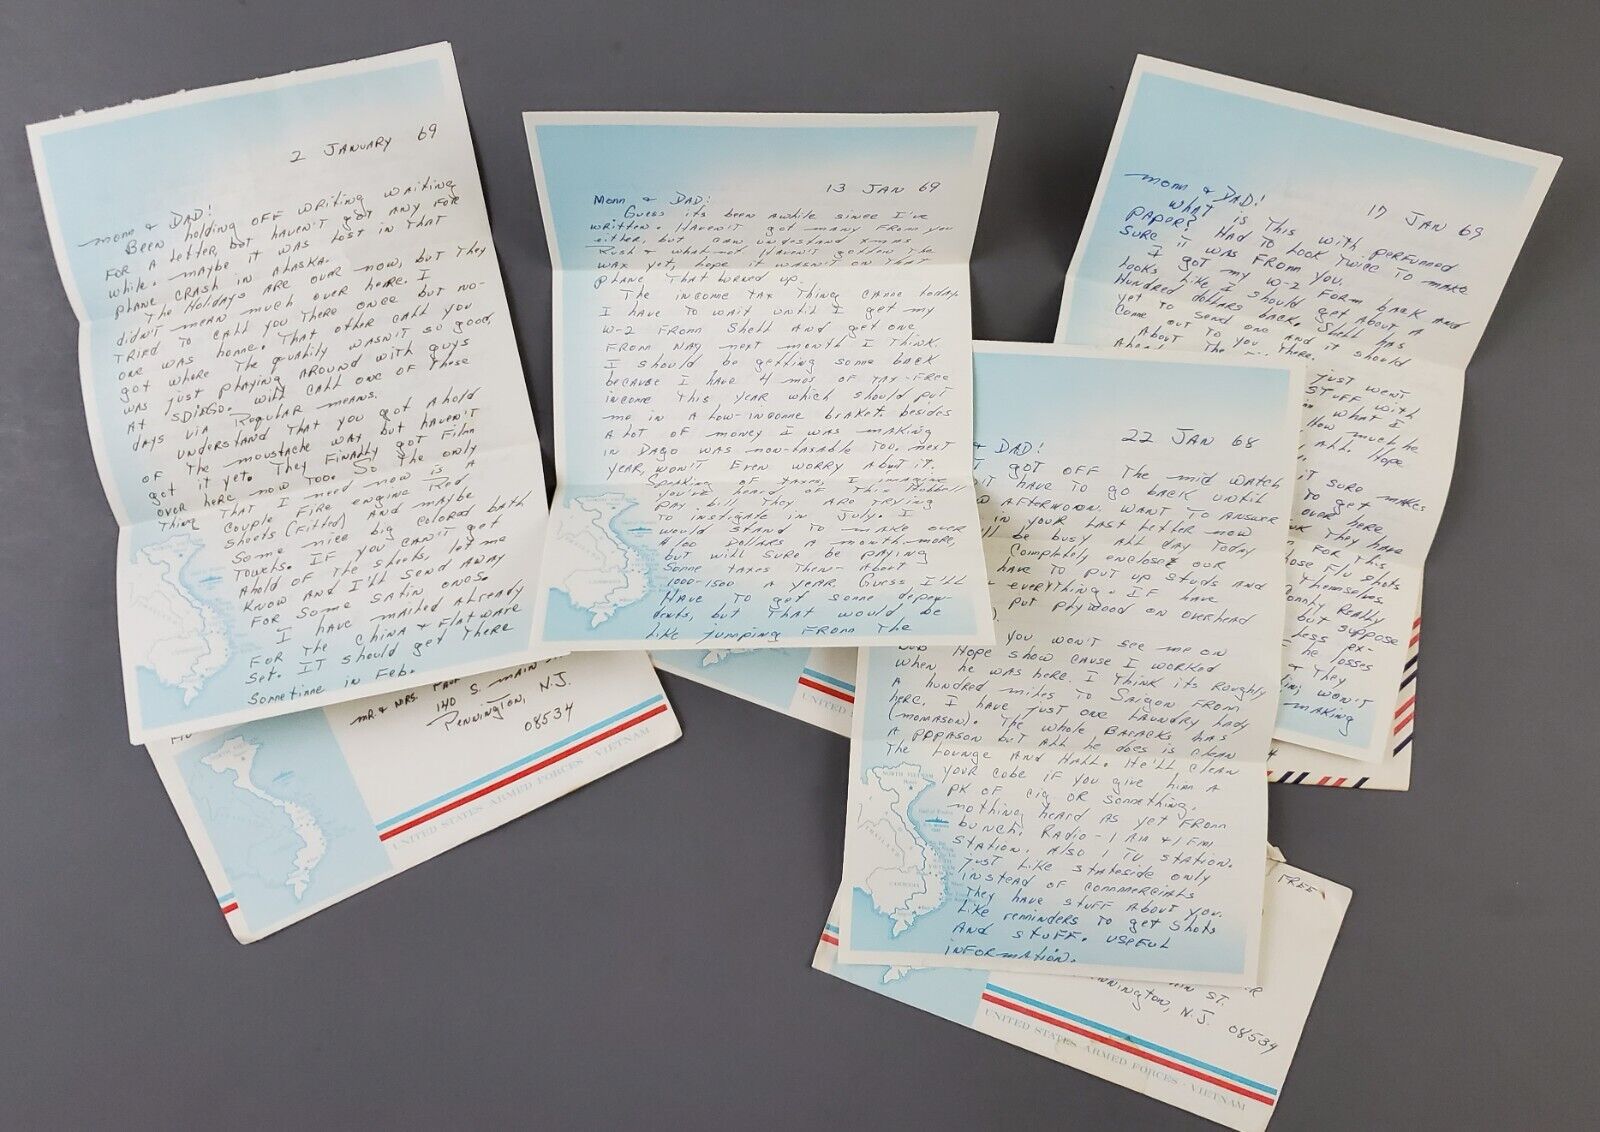 2 JANUARY 69
Mom & DAD!
Been holding OFF writing writing
FOR A letter, but haven't got any FOR
while. Maybe it was lost in that
plane crash in Alaska.
The Holidays are over now, but they
didn't mean much over here. I
tried to call you there once but no-
one was home. That other call you
got where the quality wasn't so good,
was just playing around with guys
At SDiego. will call one of these
days via Regular means.
understand that you got ahold
of the moustache wax but haven't
got it yet. They finally got Film
over here now too. So the only
thing that I need now is a
couple Fire engine Red
sheets (Fitted) and maybe
some nice big colored bath
towels. If you can't get
ahold of the sheets, let me
know and I'll send away
for some satin ones.
I have mailed already
for the china & flatware
set. IT should get there
sometime in Feb.
MR & MRS.
140 S. MAIN
Pennington, N.J.
08534
UNITED STATES ARMED FORCES - VIETNAM
13 JAN 69
Mom & DAD!
Guess its been awhile since I've
written. Haven't got many from you
either, but can understand xmas
Rush & what-not. Haven't gotten the
wax yet, hope it wasn't on that
plane that burned up.
The income tax thing came today.
I have to wait until I get my
W-2 From Shell and get one
From Navy next month I think.
I should be getting some back
because I have 4 mos of tax-free
income this year which should put
me in a low-income braket. besides
a lot of money I was making
in Dago was non-taxable too. next
year, won't even worry about it.
Speaking of taxes, I imagine
you've heard of this Hubbell
pay bill they are trying
to instigate in July. I
would stand to make over
a 100 dollars a month more,
but will sure be paying
some taxes then - about
1000-1500 a year. Guess I'll
have to get some depen-
dents, but that would be
like jumping from the
UNITED S
17 JAN 69
Mom & DAD!
What is this with perfumed
paper? Had to look twice to make
sure it was from you.
I got my W-2 Form back and
looks like I should get about a
Hundred dollars back. Shell has
yet to send one and it should
come out to you there.
About the
just went
stuff with
in what I
How much he
All. Hope
it sure makes
to get
over here.
they have
for this
those flu shots
themselves
Really
but suppose
less ex-
he losses
& they
won't
making
22 JAN 68
& DAD!
got off the mid watch
have to go back until
afternoon. Want to answer
in your last letter now
be busy all day today
completely enclose our
have to put up studs and
everything. If have
put plywood on overhead
you won't see me on
Bob Hope show cause I worked
when he was here. I think its roughly
a hundred miles to Saigon from
here. I have just one laundry lady
(momason). The whole baracks has
a popason but all he does is clean
the lounge and hall. He'll clean
your cube if you give him a
pk of cig or something.
nothing heard as yet from
bunch. Radio - 1 AM & 1 FM
station. Also 1 TV station.
just like stateside only
instead of commercials
they have stuff about you.
like reminders to get shots
and stuff. useful
information.
NORTH VIETNAM
THAILAND
FREE
ST.
nnington, N.J. 08534
UNITED STATES ARMED FORCES - VIETNAM